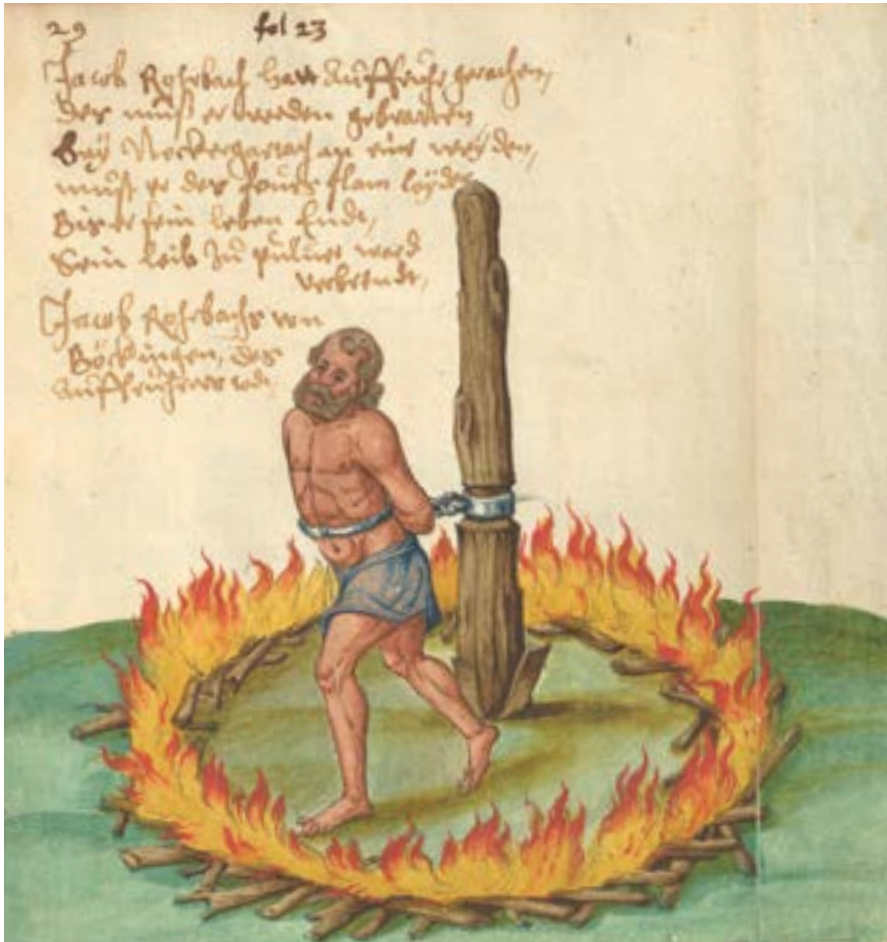 29 fol 23
Jacob Rohrbach hatt Auffruhr
der muß er werden gebratten
bey Neckergartach an ein weyden,
muß er des feurs flam leyden
Bis er sein leben Endt,
Sein leib zu puluer ward
verbrendt,
Jacob Rohrbachs von
Böckingen, des
Auffruhrers todt